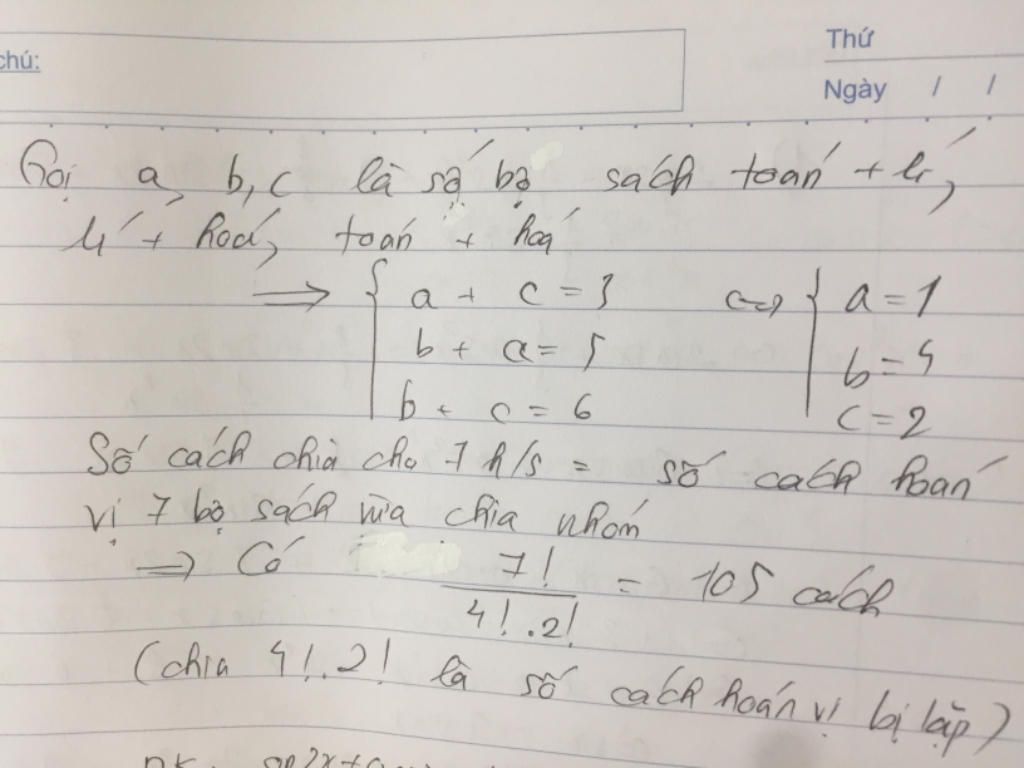 chú:
Thứ
Ngày / /
Gọi a, b, c là số bộ sách toán + lí,
lí + hoá, toán + hoá
=> { a + c = 3 <=> { a = 1
b + a = 5 b = 4
b + c = 6 c = 2
Số cách chia cho 7 h/s = số cách hoán
vị 7 bộ sách vừa chia nhóm
=> Có 7! / 4! . 2! = 105 cách
(chia 4! . 2! là số cách hoán vị bị lặp)